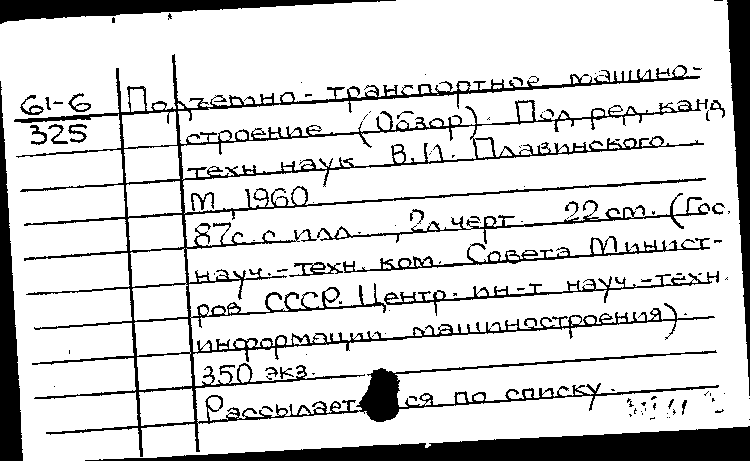 61-6
325
Подъемно-транспортное машино-
строение. (Обзор). Под ред. канд.
техн. наук В.И. Плавинского.
М., 1960
87с. с илл., 2л. черт. 22 см. (Гос.
науч.-техн. ком. Совета Минист-
ров СССР. Центр. ин-т науч.-техн.
информации машиностроения).
350 экз.
Рассылается по списку.